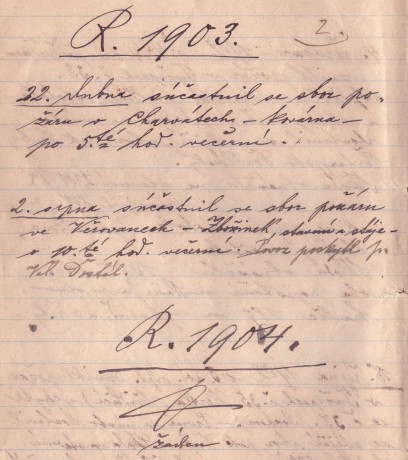 2.
R. 1903.
22. dubna súčastnil se sbor po-
žáru v Charvátech - kovárna -
po 5.té hod. večerní.
2. srpna súčastnil se sbor požáru
ve Věrovanech - Zbořinek, stavení a stáje -
o 10.té hod. večerní. Dovoz poskytl p.
Vel. Dostál.
R. 1904.
žáden